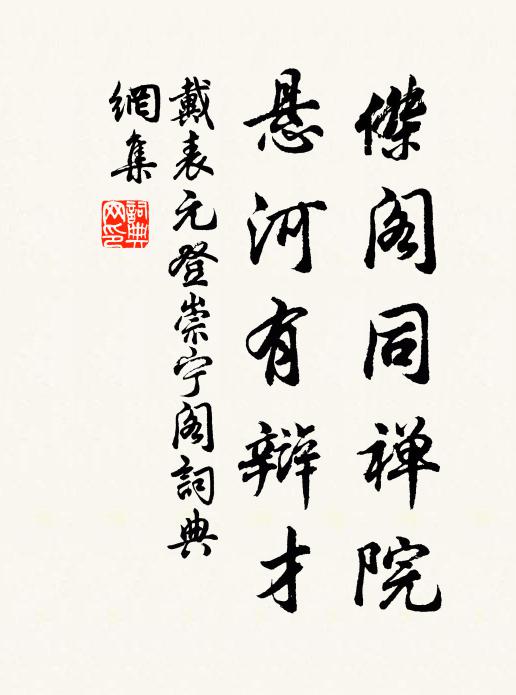 傑阁同禅院
悬河有辩才
戴表元登崇宁阁詞典
網集
詞典
网印